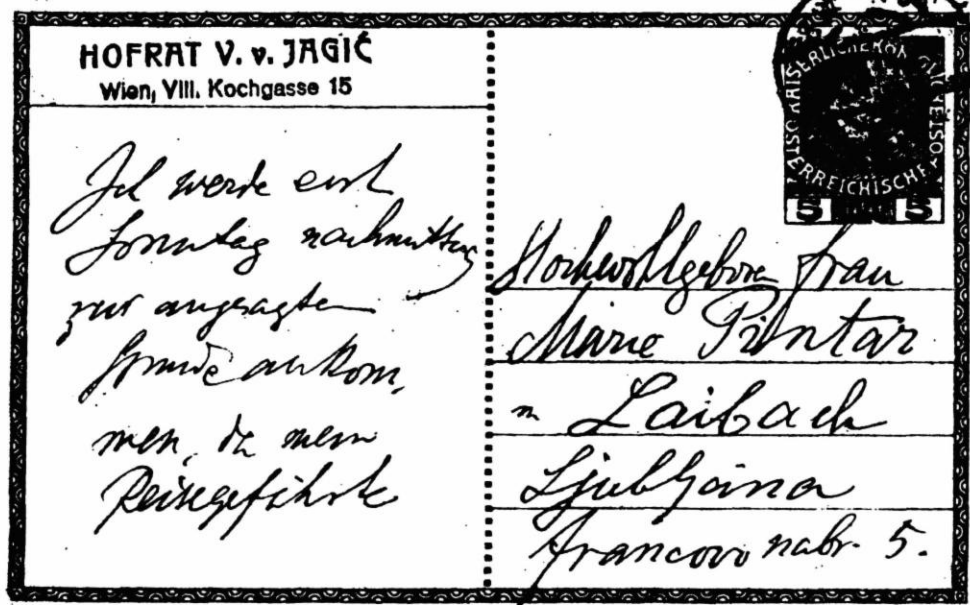 HOFRAT V. v. JAGIĆ
Wien, VIII. Kochgasse 15
Ich werde erst
Sonntag nachmittag
zur angesagten
Stunde ankom-
men, da mein
Reisegefährte
KAISERLICHE KÖNIGLICHE
ÖSTERREICHISCHE
5 5
Hochwohlgeboren Frau
Marie Pintar
in Laibach
Ljubljana
Francovo nabr. 5.